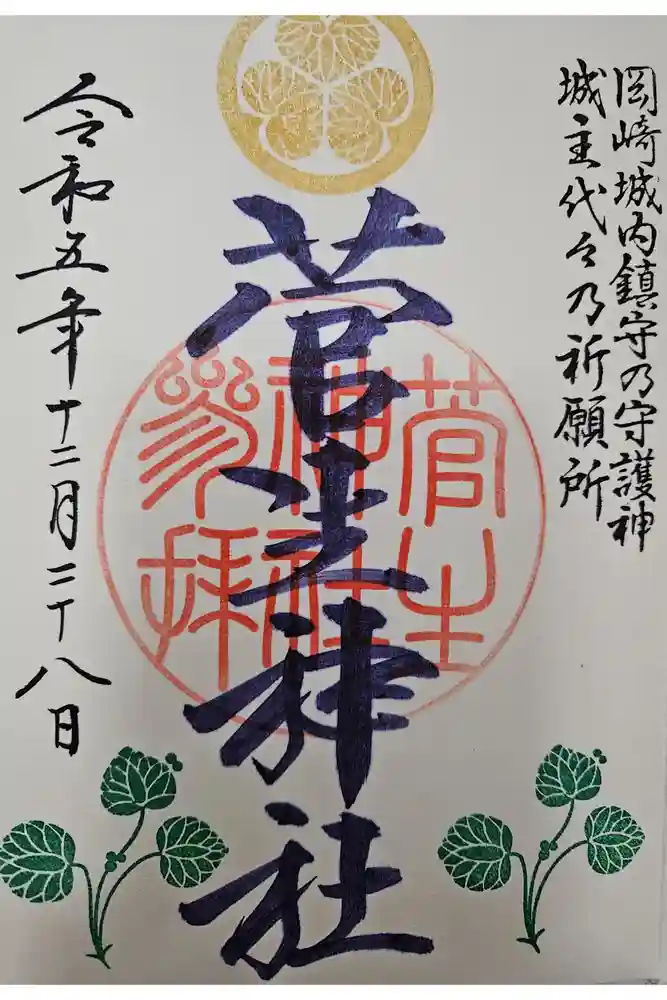 岡崎城内鎮守乃守護神
城主代々乃祈願所
菅生神社
菅生
神社
參拝
令和五年十二月二十八日